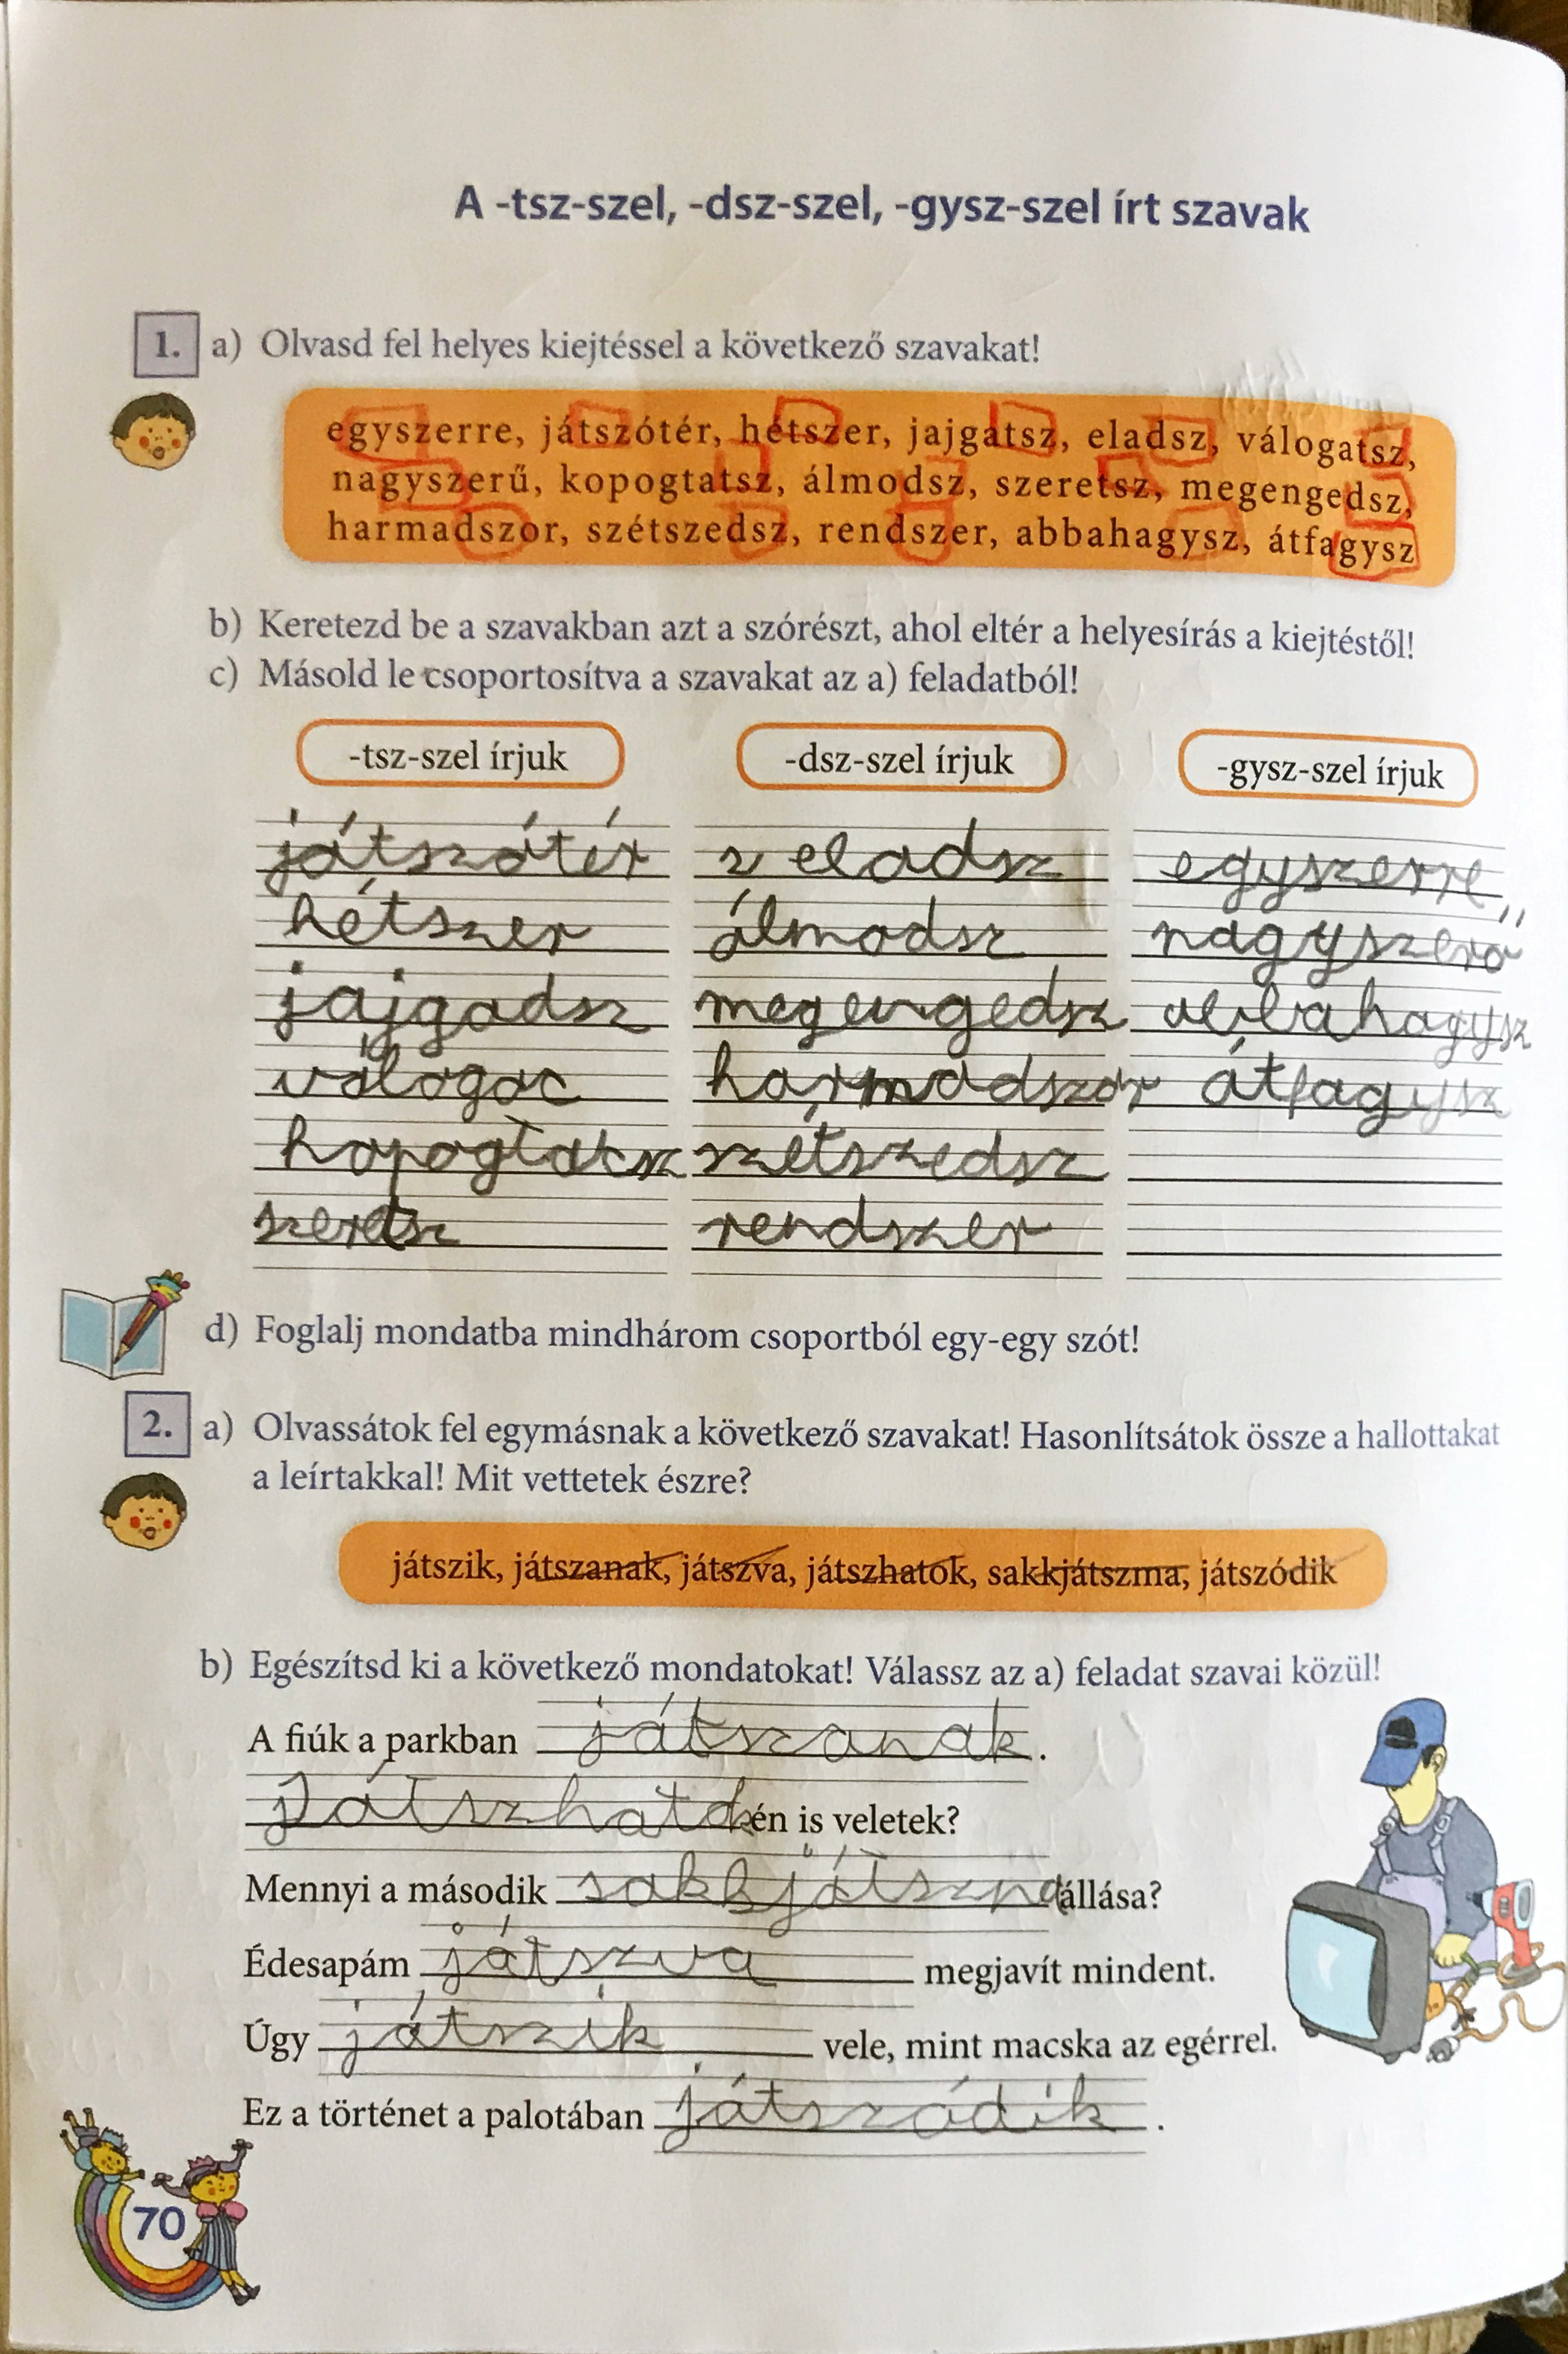 A -tsz-szel, -dsz-szel, -gysz-szel írt szavak
1. a) Olvasd fel helyes kiejtéssel a következő szavakat!
egyszerre, játszótér, hétszer, jajgatsz, eladsz, válogatsz,
nagyszerű, kopogtatsz, álmodsz, szeretsz, megengedsz,
harmadszor, szétszedsz, rendszer, abbahagysz, átfagysz
b) Keretezd be a szavakban azt a szórészt, ahol eltér a helyesírás a kiejtéstől!
c) Másold le csoportosítva a szavakat az a) feladatból!
-tsz-szel írjuk -dsz-szel írjuk -gysz-szel írjuk
játszótér eladsz egyszerre
hétszer álmodsz
jajgadsz megengedsz
válogac harmadszor átfagysz
szétszedsz
rendszer
d) Foglalj mondatba mindhárom csoportból egy-egy szót!
2. a) Olvassátok fel egymásnak a következő szavakat! Hasonlítsátok össze a hallottakat
a leírtakkal! Mit vettetek észre?
játszik, játszanak, játszva, játszhatok, sakkjátszma, játszódik
b) Egészítsd ki a következő mondatokat! Válassz az a) feladat szavai közül!
A fiúk a parkban játszanak.
Játszhatok én is veletek?
Mennyi a második állása?
Édesapám játszva megjavít mindent.
Úgy játszik vele, mint macska az egérrel.
Ez a történet a palotában játszódik.
70